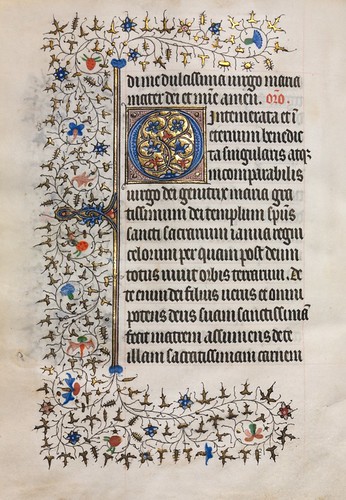 di me dulcissima uirgo maria
mater dei et mīe amen. orō.
O Intemerata et ī
eternum benedic
ta singularis atq̄
incomparabilis
uirgo dei genitrix maria gra
tissimum dei templum spūs
sancti sacrarium ianua regni
celorum per quam post deum
totus uiuit orbis terrarum. De
te enim dei filius uerus et omni
potens deus suam sanctissimā
fecit matrem assumens de te
illam sacratissimam carnem